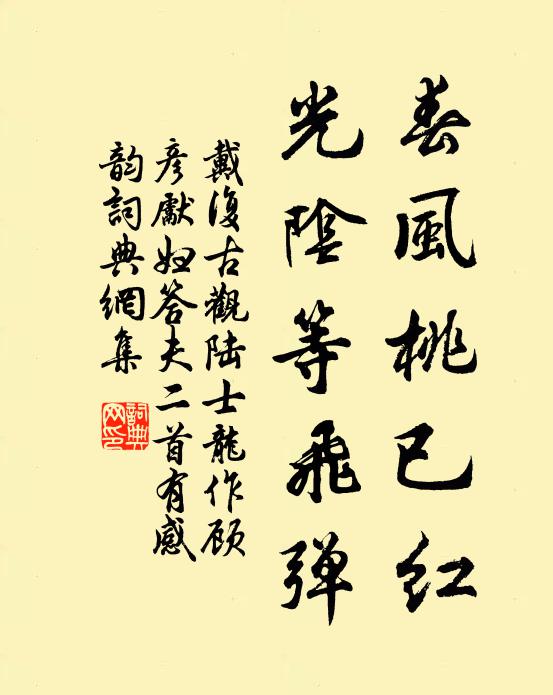 春風桃已紅
光陰等飛彈
戴復古觀陸士龍作顧
彦獻妇答夫二首有感
韵詞典網集
詞典
网印